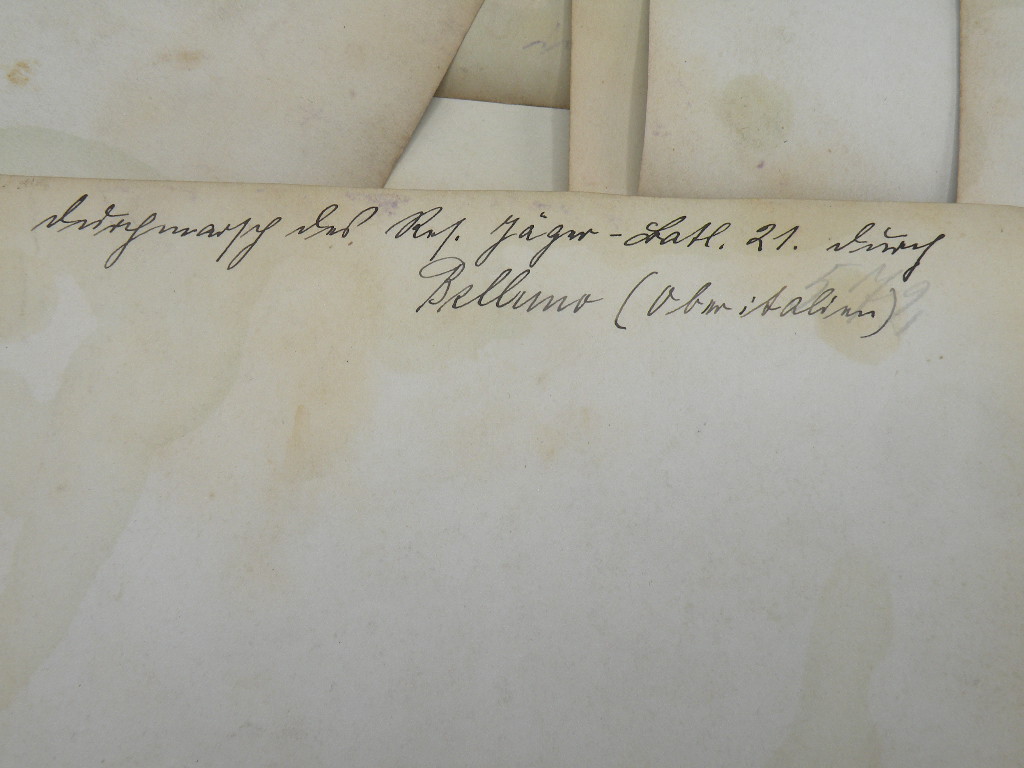 Durchmarsch des Res. Jäger-Batl. 21. durch
Belluno (Oberitalien)